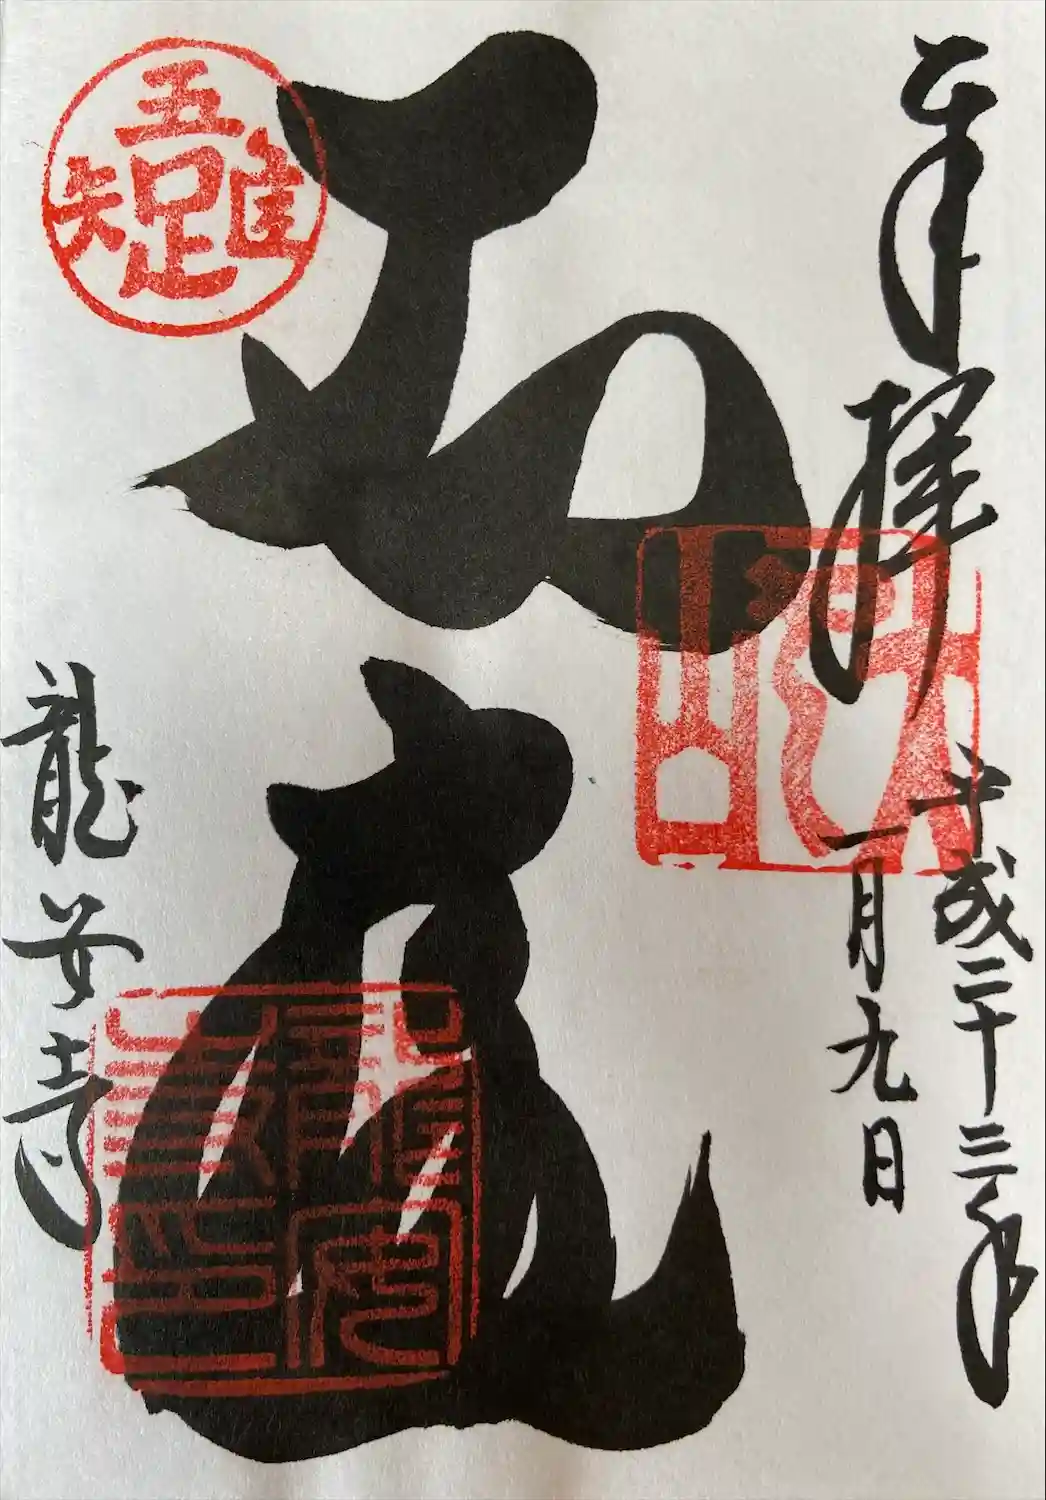 奉拝
平成二十三年
一月九日
石庭
吾唯足知
龍安寺